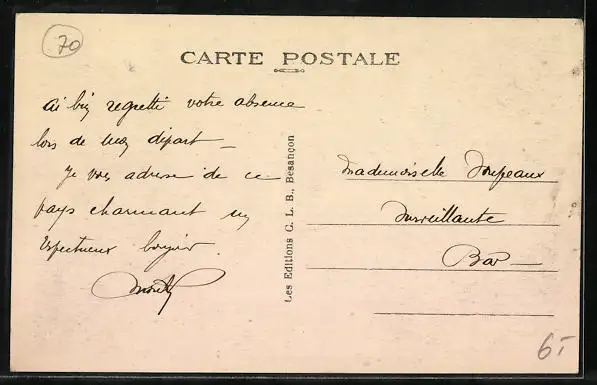 70
CARTE POSTALE
ai bien regretté votre absence
lors de mon départ _
Je vous adresse de ce
pays charmant un
respectueux bonjour.
Les Editions C. L. B., Besançon
Mademoiselle
Surveillante
Bar _
6-